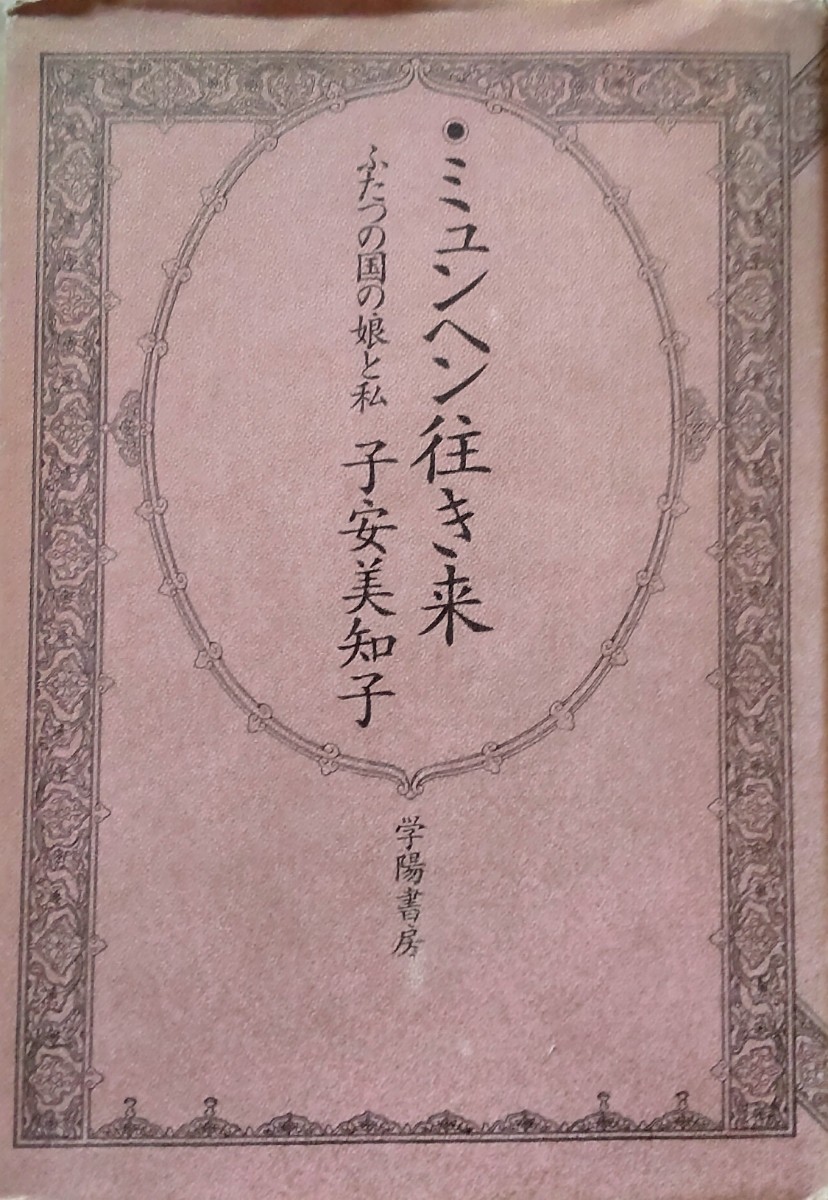 ミュンヘン往き来
ふたつの国の娘と私
子安美知子
学陽書房